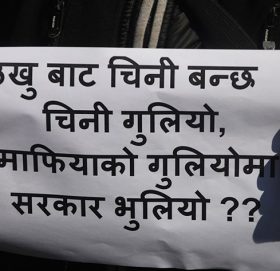 उखु बाट चिनी बन्छ
चिनी गुलियो,
माफियाको गुलियोमा
सरकार भुलियो ??